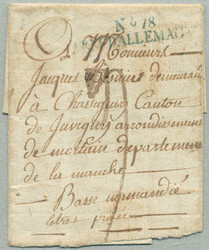 No 18
ALLEMAG
A Monsieur
Jacques demeurant
à Chasseguey Canton
de Juvigny arrondissement
de mortain departement
de la manche
Basse normandie